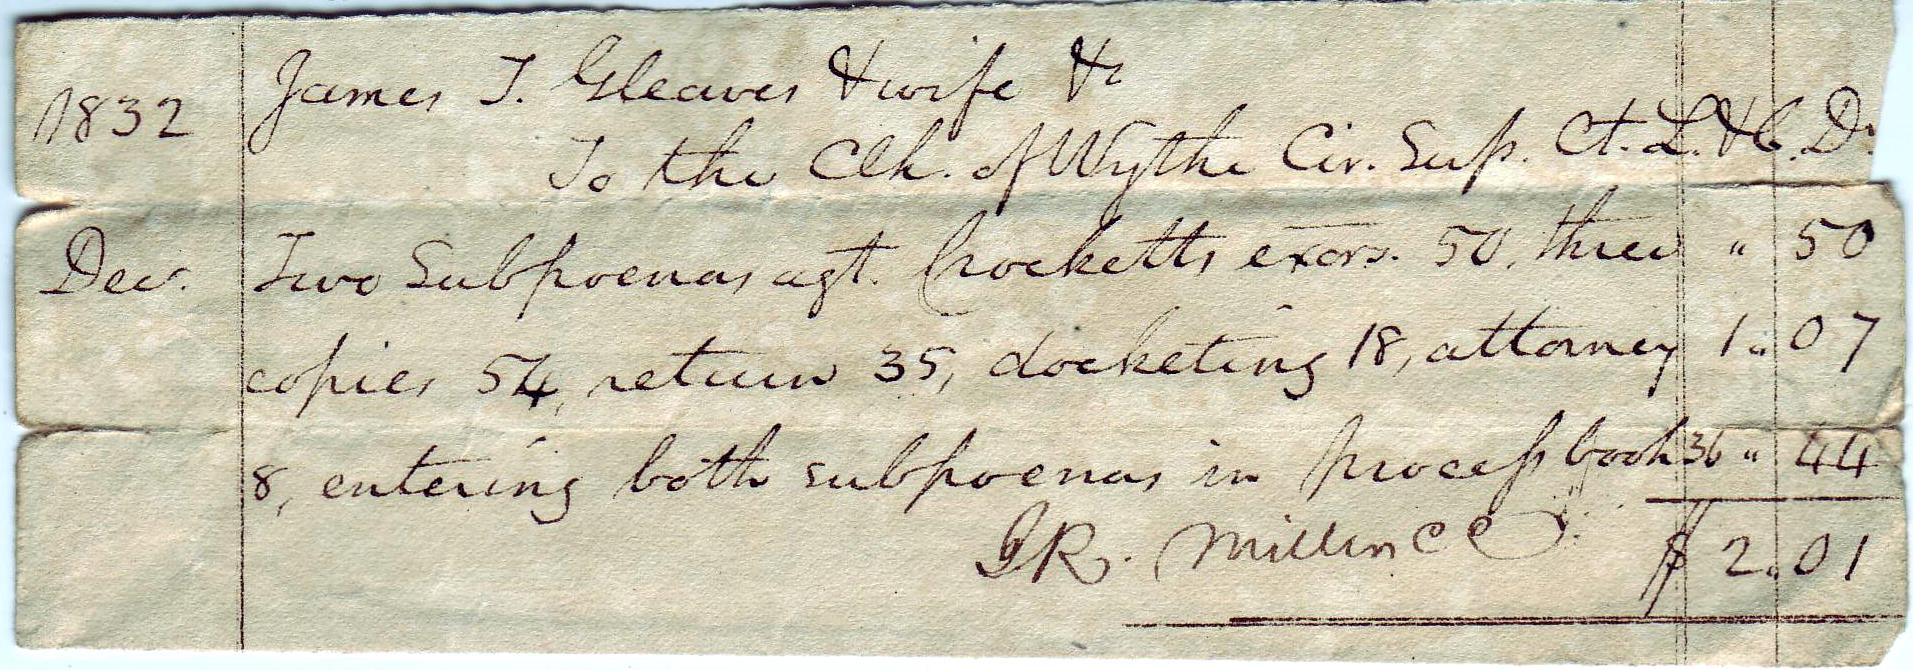 1832 James T. Gleaves & wife &c
To the Clk. of Wythe Cir. Sup. Ct. L. & C. Dr.
Dec. Two Subpoenas agt. Crocketts exors. 50, three " 50
copies 54, return 35, docketing 18, attorney 1 " 07
8, entering both subpoenas in process book 36 " 44
J R. Miller C C $ 2. 01